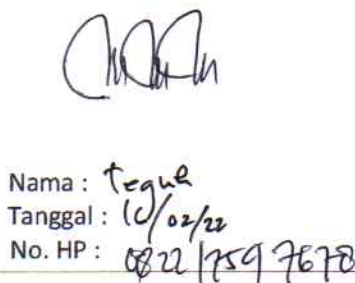 Nama : Teguh
Tanggal : 10/02/22
No. HP : 0822 1759 7678